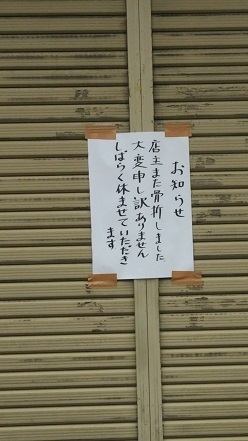 お知らせ
店主また骨折しました
大変申し訳ありません
しばらく休ませていただき
ます